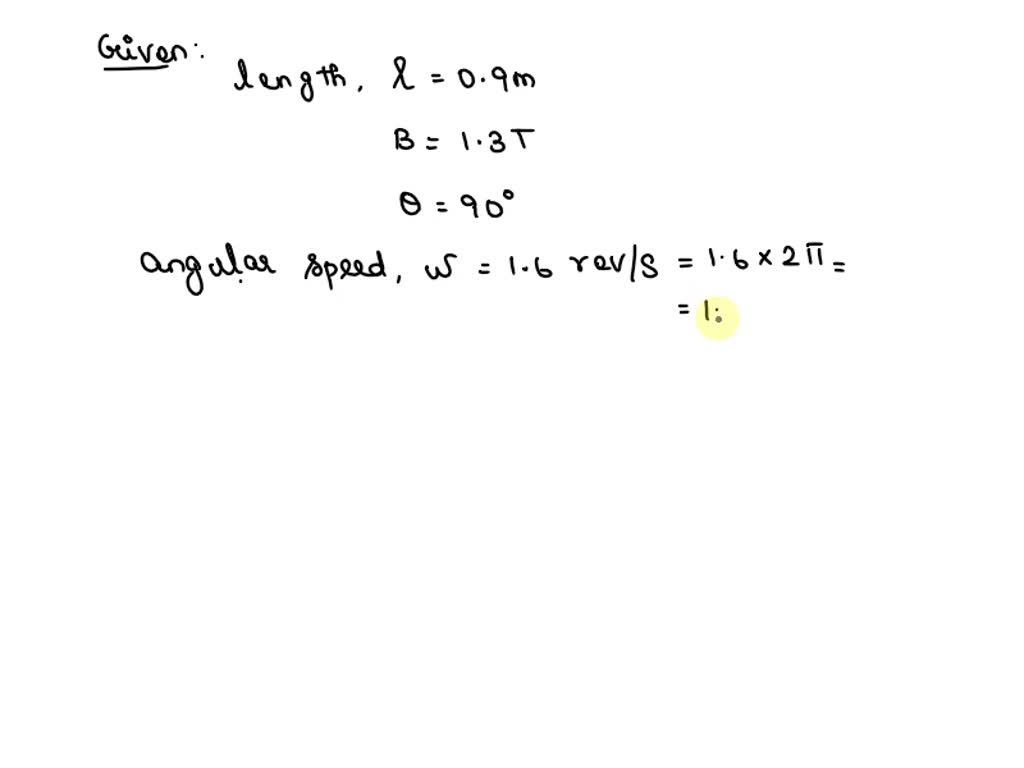 Given:
length, l = 0.9m
B = 1.3T
θ = 90°
angular speed, w = 1.6 rev/s = 1.6 × 2π =
= 1.